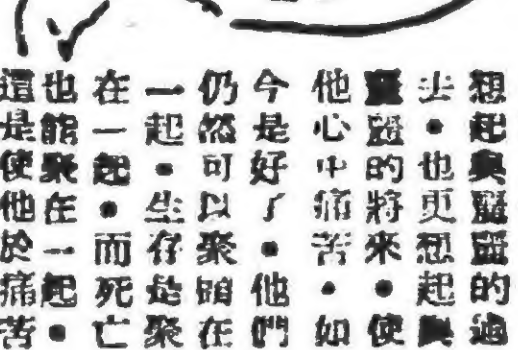 想起與豔豔的過
去•也更想起與
豔豔的將來•使
他心中痛苦•如
今是好了•他們
仍然可以聚在
一起•生存是聚
在一起•而死亡
也能聚在一起•
這是使他於痛苦